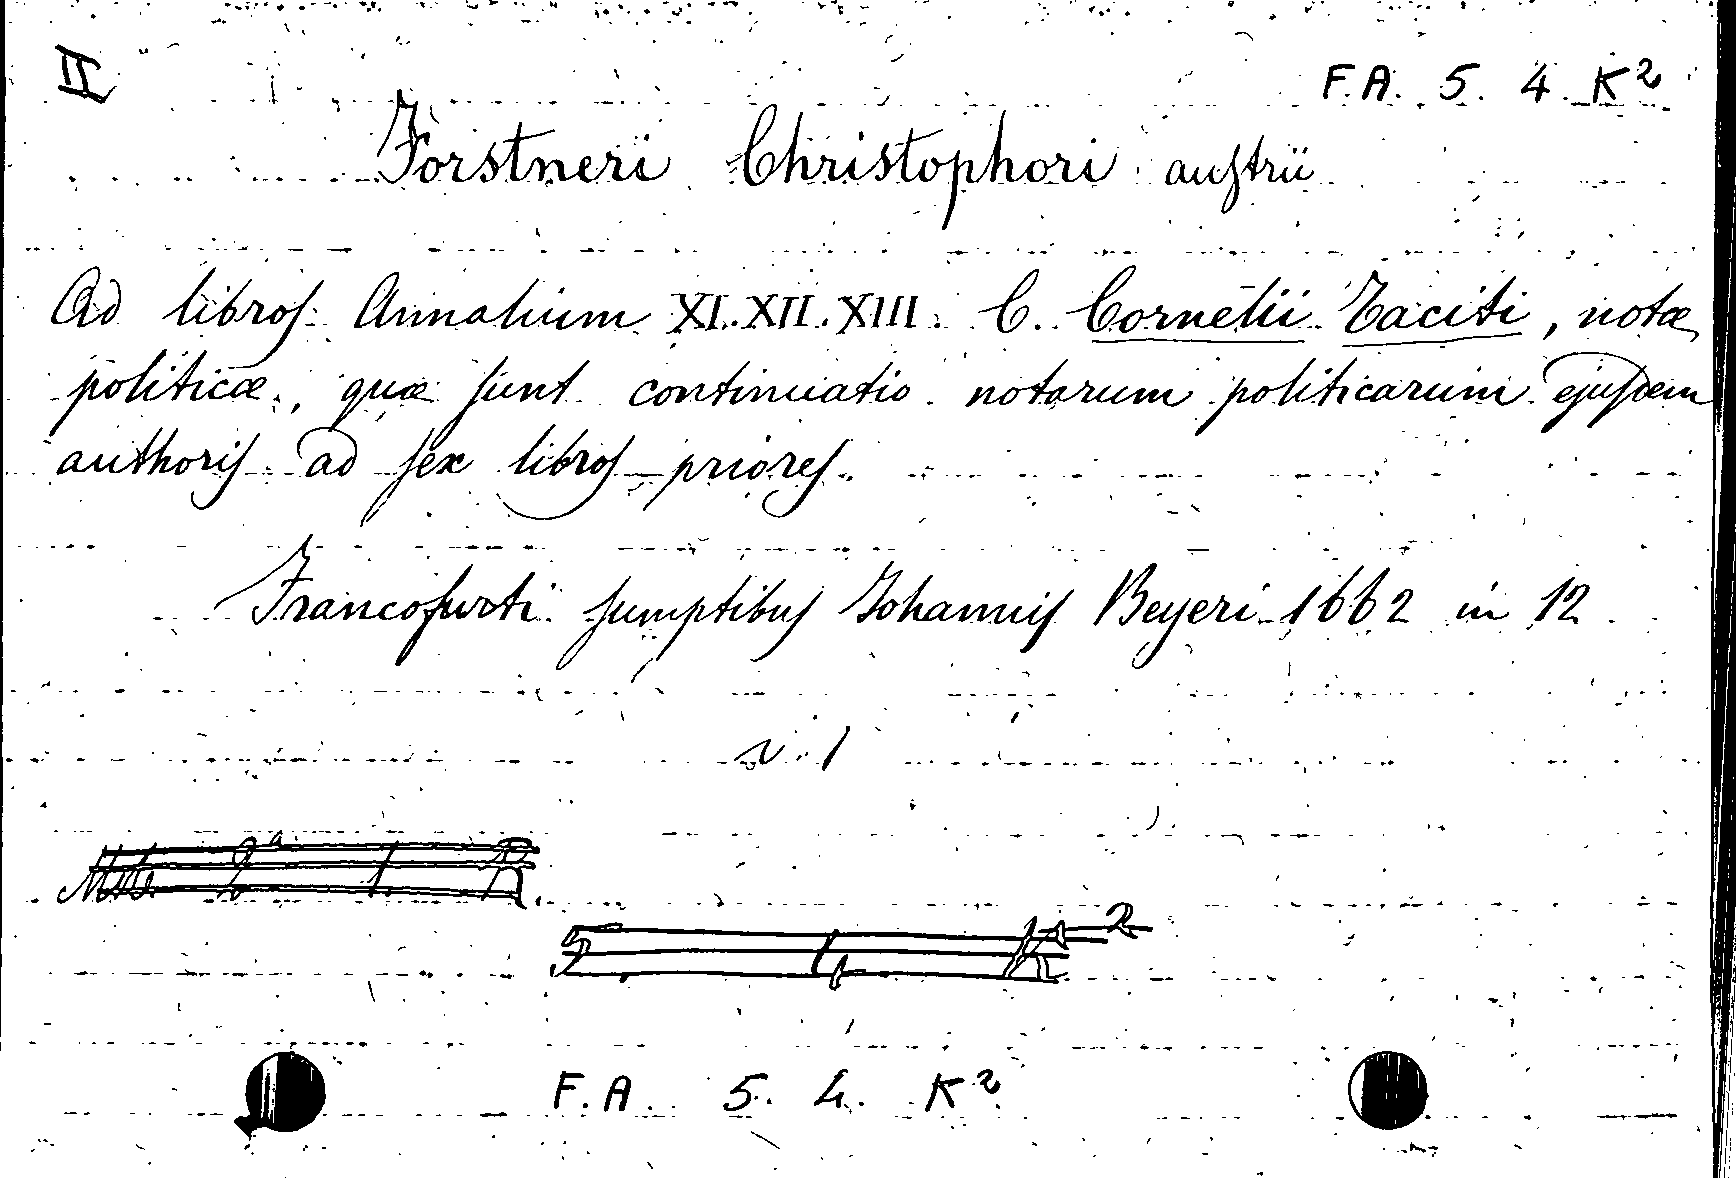 II
F.A. 5. 4. K²
Forstneri Christophori auſtrii
Ad libroſ Annalium XI. XII. XIII. C. Cornelii Taciti, notæ
politicæ, quæ ſunt continuatio notarum politicarum ejuſdem
authoriſ ad ſex libroſ prioreſ.
Francofurti ſumptibuſ Johanniſ Beyeri 1662 in 12
v. 1
F.A. 5. 4. K²